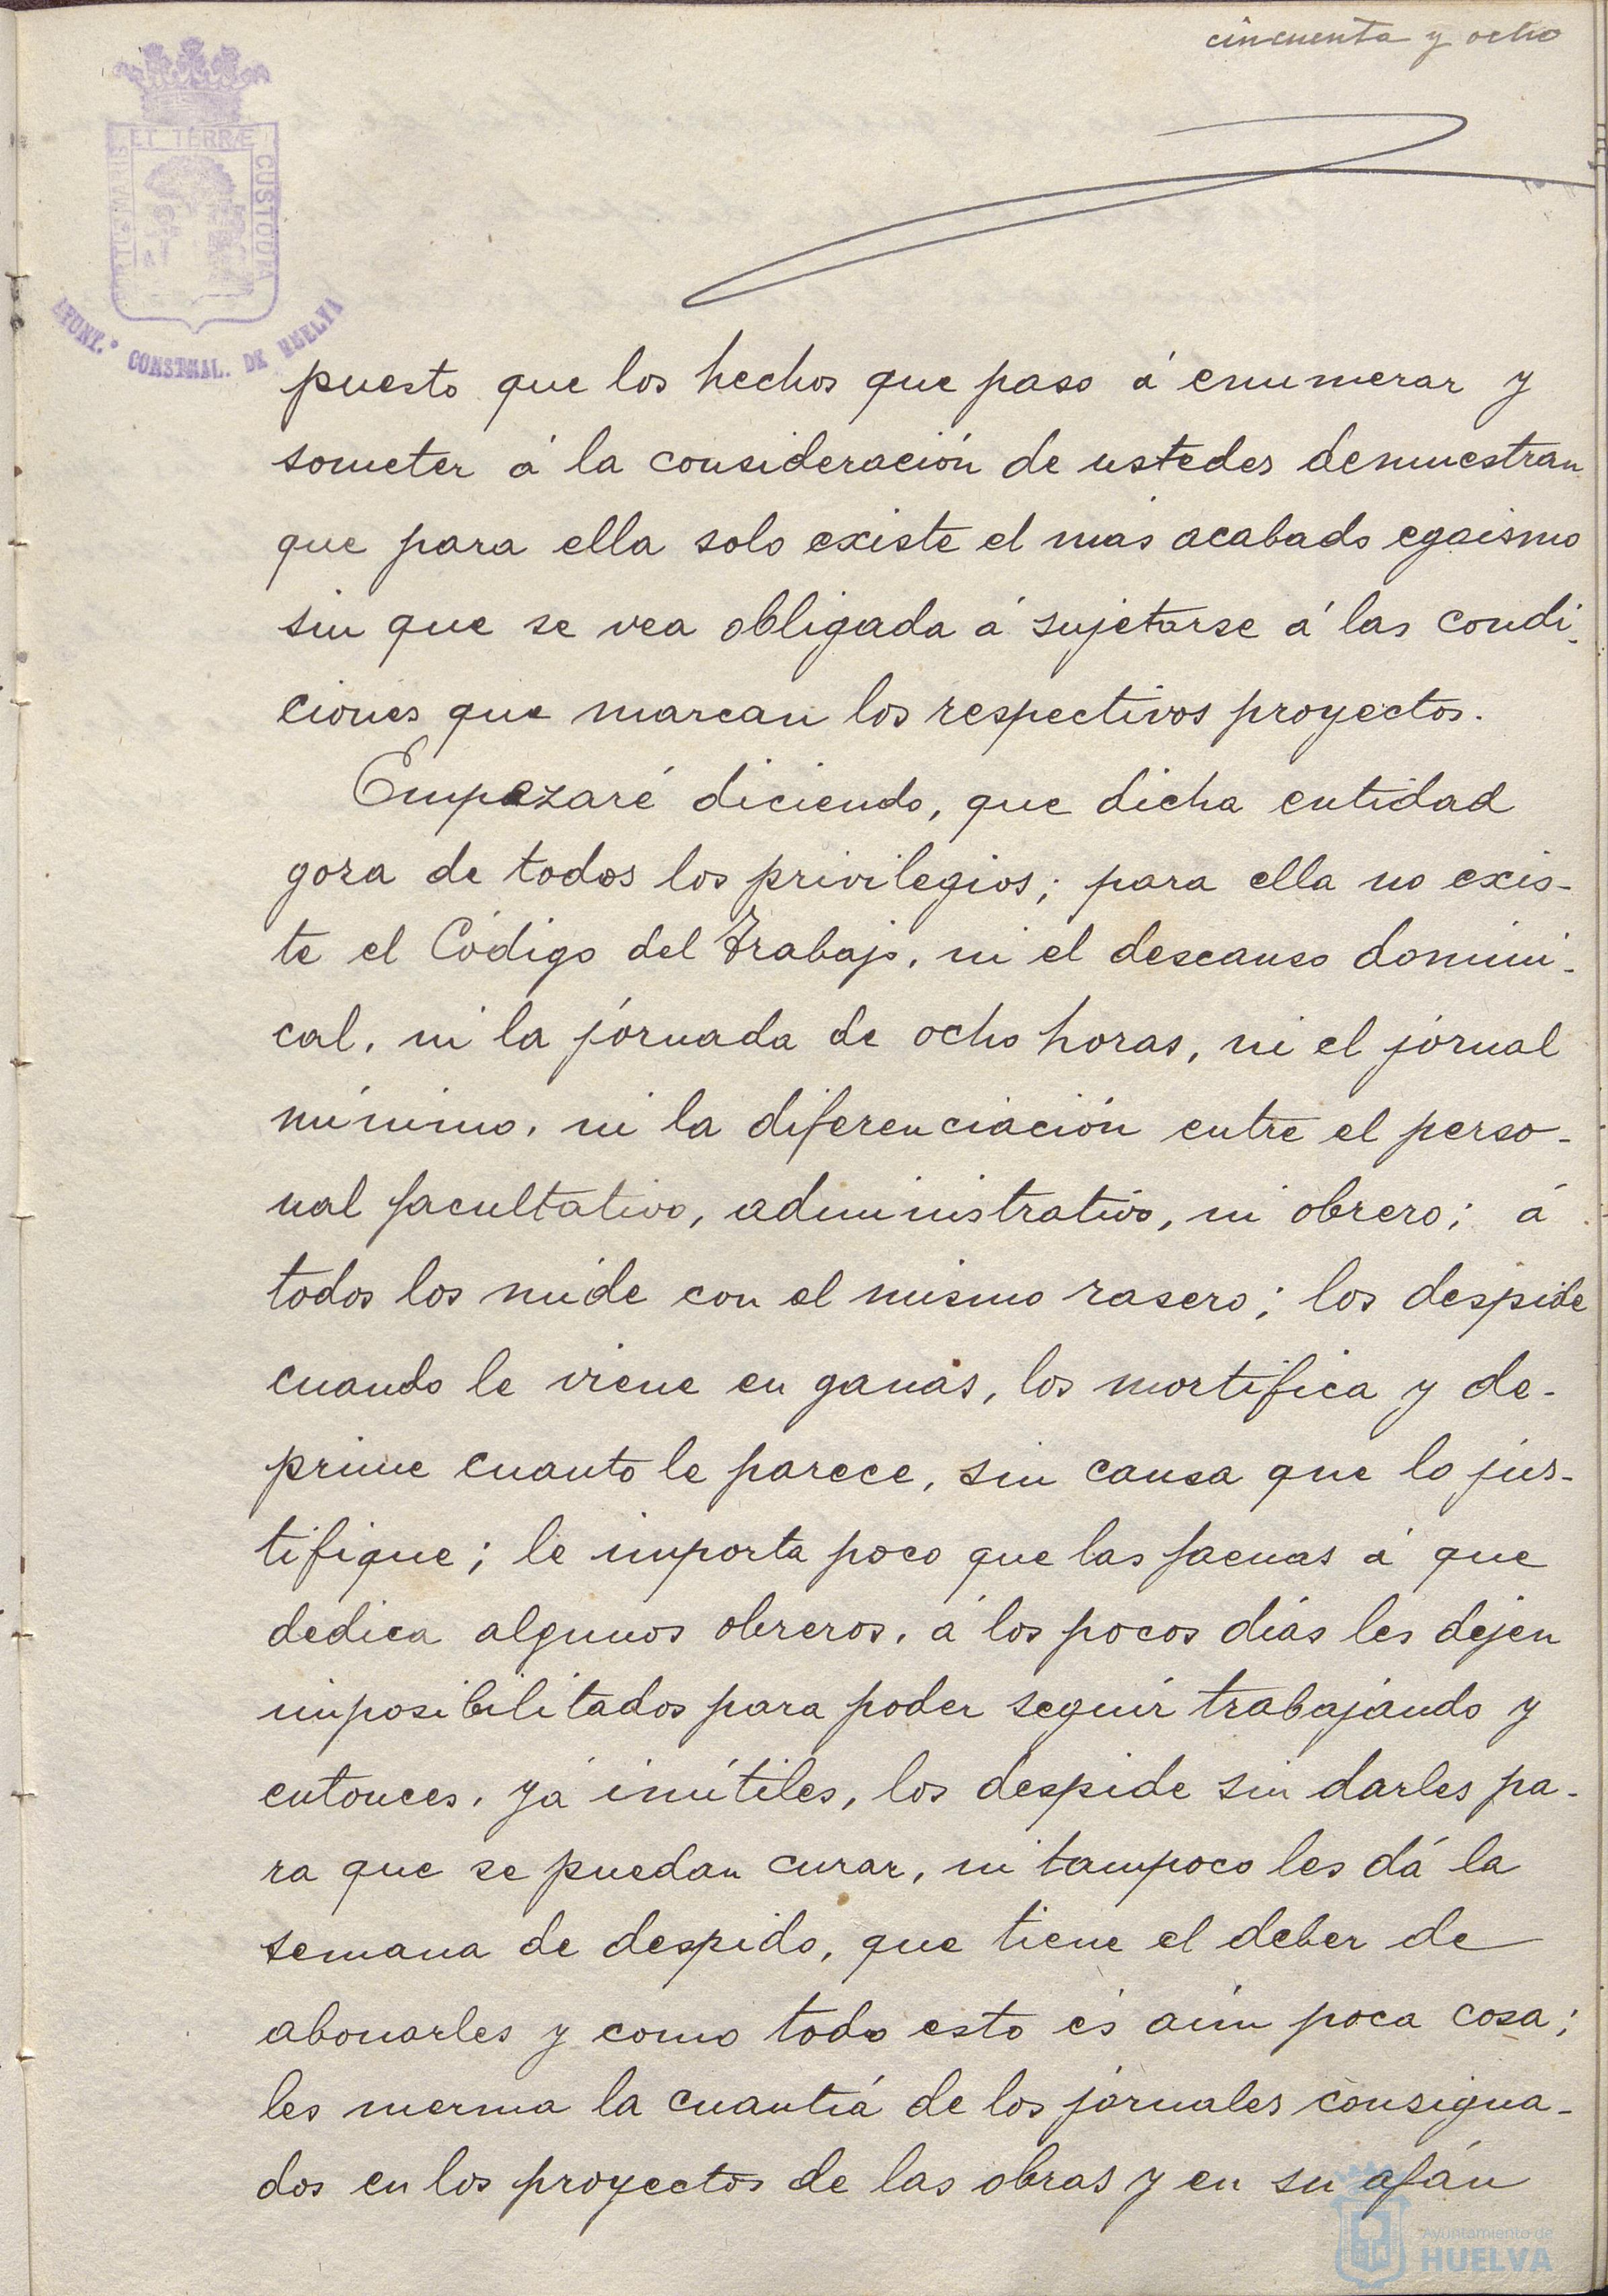 cincuenta y ocho
ET TERRÆ
CUSTODIA
PORTUS MARIS
AYUNT.º CONSTNAL. DE HUELVA
puesto que los hechos que paso á enumerar y
someter á la consideración de ustedes demuestran
que para ella solo existe el mas acabado egoismo
sin que se vea obligada á sujetarse á las condi-
ciones que marcan los respectivos proyectos.
Empezaré diciendo, que dicha entidad
goza de todos los privilegios; para ella no exis-
te el Código del Trabajo, ni el descanso domini-
cal, ni la jornada de ocho horas, ni el jornal
mínimo, ni la diferenciación entre el perso-
nal facultativo, administrativo, ni obrero; á
todos los mide con el mismo rasero; los despide
cuando le viene en ganas, los mortifica y de-
prime cuanto le parece, sin causa que lo jus-
tifique; le importa poco que las faenas á que
dedica algunos obreros, á los pocos días les dejen
imposibilitados para poder seguir trabajando y
entonces, yá inútiles, los despide sin darles pa-
ra que se puedan curar, ni tampoco les dá la
semana de despido, que tiene el deber de
abonarles y como todo esto és aún poca cosa;
les merma la cuantía de los jornales consigna-
dos en los proyectos de las obras y en su afán
Ayuntamiento de
HUELVA